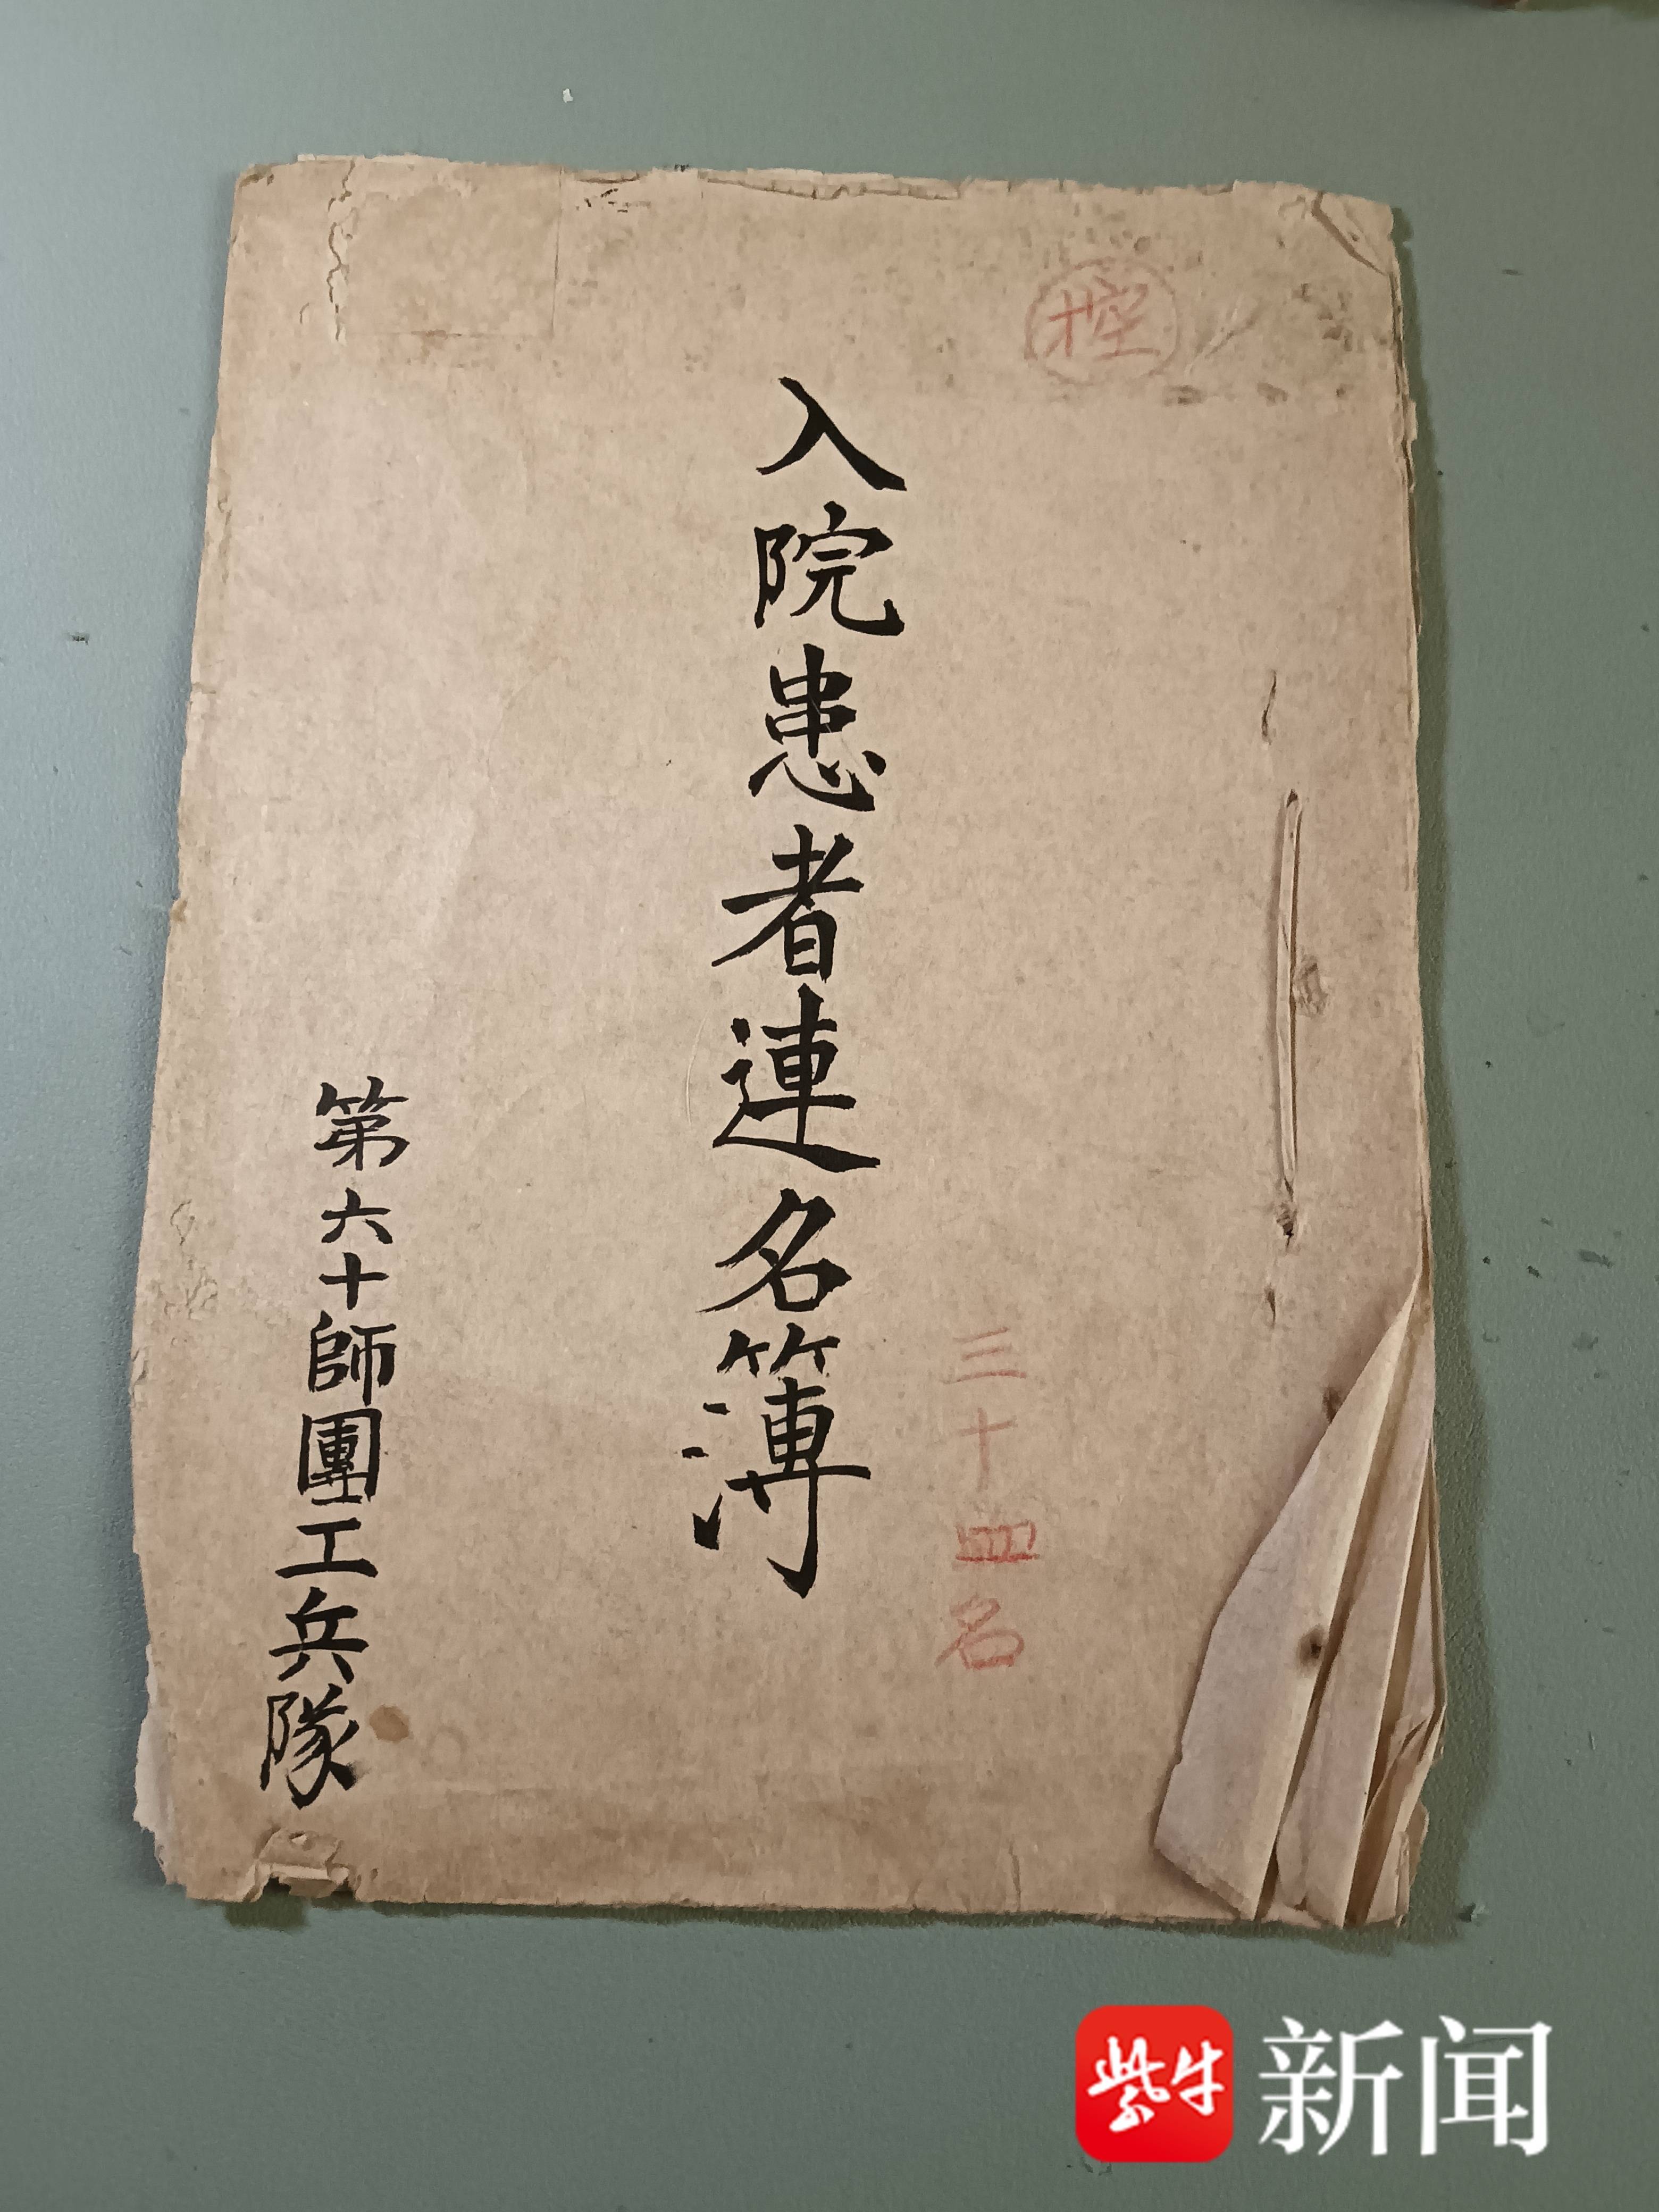 控
三十四名
入院患者連名簿
第六十師團工兵隊
紫牛 新闻